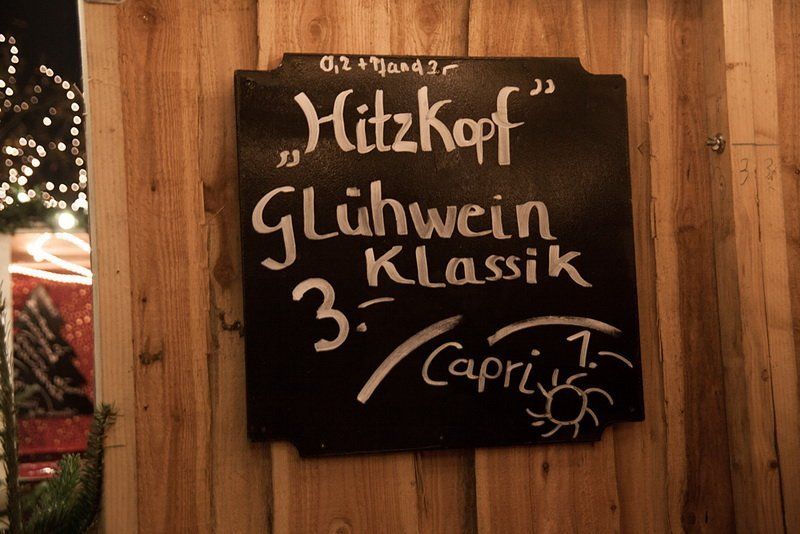 0,2 + Pfand 2.-
„Hitzkopf"
Glühwein
Klassik
3.-
Capri 1.-